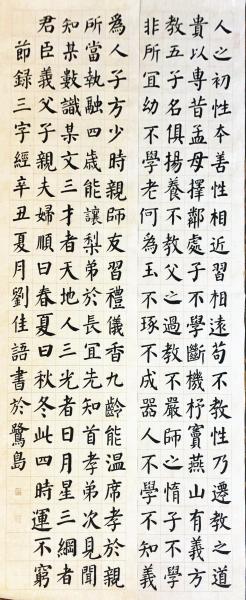 人之初性本善性相近習相遠苟不教性乃遷教之道
貴以專昔孟母擇鄰處子不學斷機杼竇燕山有義方
教五子名俱揚養不教父之過教不嚴師之惰子不學
非所宜幼不學老何為玉不琢不成器人不學不知義
為人子方少時親師友習禮儀香九齡能溫席孝於親
所當執融四歲能讓梨弟於長宜先知首孝弟次見聞
知某數識某文三才者天地人三光者日月星三綱者
君臣義父子親夫婦順曰春夏曰秋冬此四時運不窮
節錄三字經辛丑夏月劉佳語書於鷺島